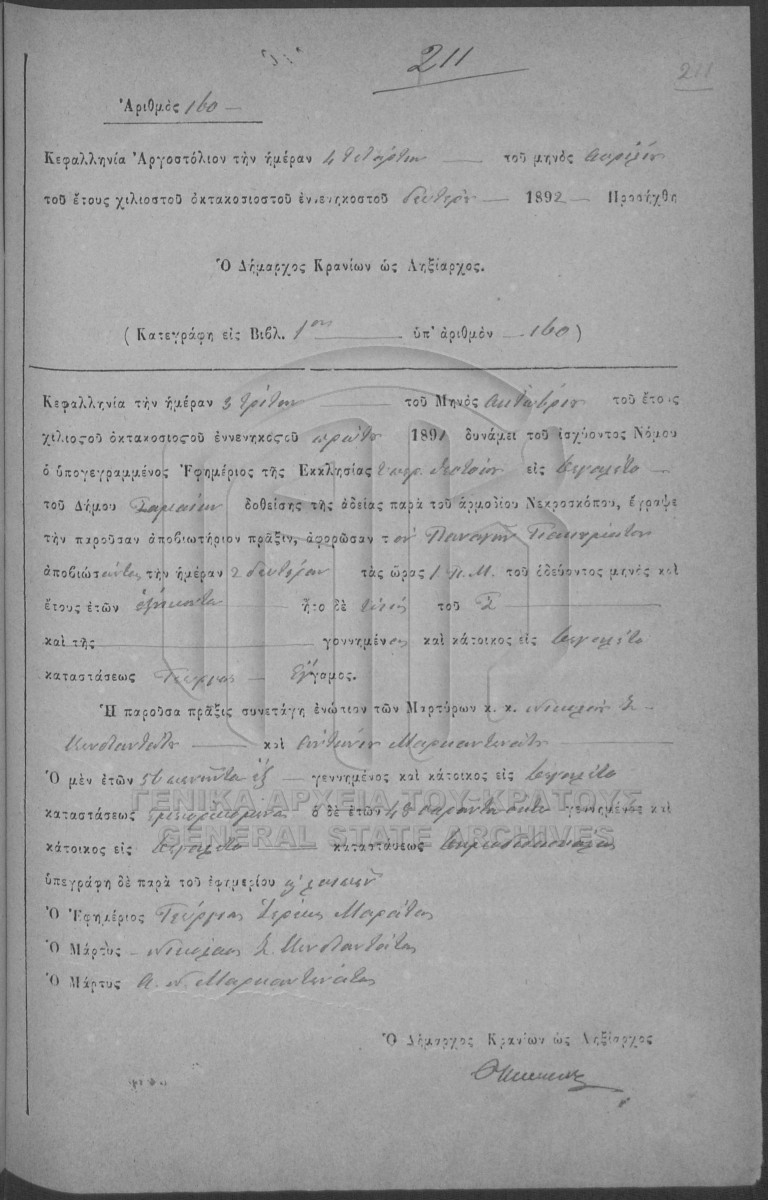 211
211
Ἀριθμὸς 160
Κεφαλληνία Ἀργοστόλιον τὴν ἡμέραν 4 τετάρτην τοῦ μηνὸς Απριλίου
τοῦ ἔτους χιλιοστοῦ ὀκτακοσιοστοῦ ἐννενηκοστοῦ δευτέρου 1892 Προσήχθη
Ὁ Δήμαρχος Κρανίων ὡς Ληξίαρχος.
( Κατεγράφη εἰς Βιβλ. 1ον ὑπ' ἀριθμὸν 160 )
Κεφαλληνία τὴν ἡμέραν 3 τρίτην τοῦ Μηνὸς Οκτωβρίου τοῦ ἔτους
χιλιοςοῦ ὀκτακοσιοςοῦ ἐννενηκοςοῦ πρώτου 1891 δυνάμει τοῦ ἰσχύοντος Νόμου
ὁ ὑπογεγραμμένος Ἐφημέριος τῆς Ἐκκλησίας εἰς
τοῦ Δήμου Σαμαίων δοθείσης τῆς ἀδείας παρὰ τοῦ ἁρμοδίου Νεκροσκόπου, ἔγραψε
τὴν παροῦσαν ἀποβιωτήριον πρᾶξιν, ἀφορῶσαν τον Παναγῆν
ἀποβιώσαντα τὴν ἡμέραν 2 δευτέραν τὰς ὥρας 1 π.μ. τοῦ ὁδεύοντος μηνὸς καὶ
ἔτους ἐτῶν ἑξήκοντα ἦτο δὲ υἱὸς τοῦ Σ
καὶ τῆς γοννημένος καὶ κάτοικος εἰς
καταστάσεως Γεωργος Ἔγγαμος.
Ἡ παροῦσα πρᾶξις συνετάγη ἐνώπιον τῶν Μαρτύρων κ. κ. Νικολάου Σ.
καὶ Αντωνίου Μαρκαντωνάτου
Ὁ μὲν ἐτῶν 56 πενῆντα ἓξ γεννημένος καὶ κάτοικος εἰς
ΓΕΝΙΚΑ ΑΡΧΕΙΑ ΤΟΥ ΚΡΑΤΟΥΣ
καταστάσεως ὁ δὲ ἐτῶν 48 σαράντα οκτώ γεννημένος καὶ
GENERAL STATE ARCHIVES
κάτοικος εἰς καταστάσεως
ὑπεγράφη δὲ παρὰ τοῦ ἐφημερίου
Ὁ Ἐφημέριος Γεώργιος Ιερεύς Μαράτος
Ὁ Μάρτυς Νικόλαος Σ.
Ὁ Μάρτυς Α. Ν. Μαρκαντωνάτος
Ὁ Δήμαρχος Κρανίων ὡς Ληξίαρχος